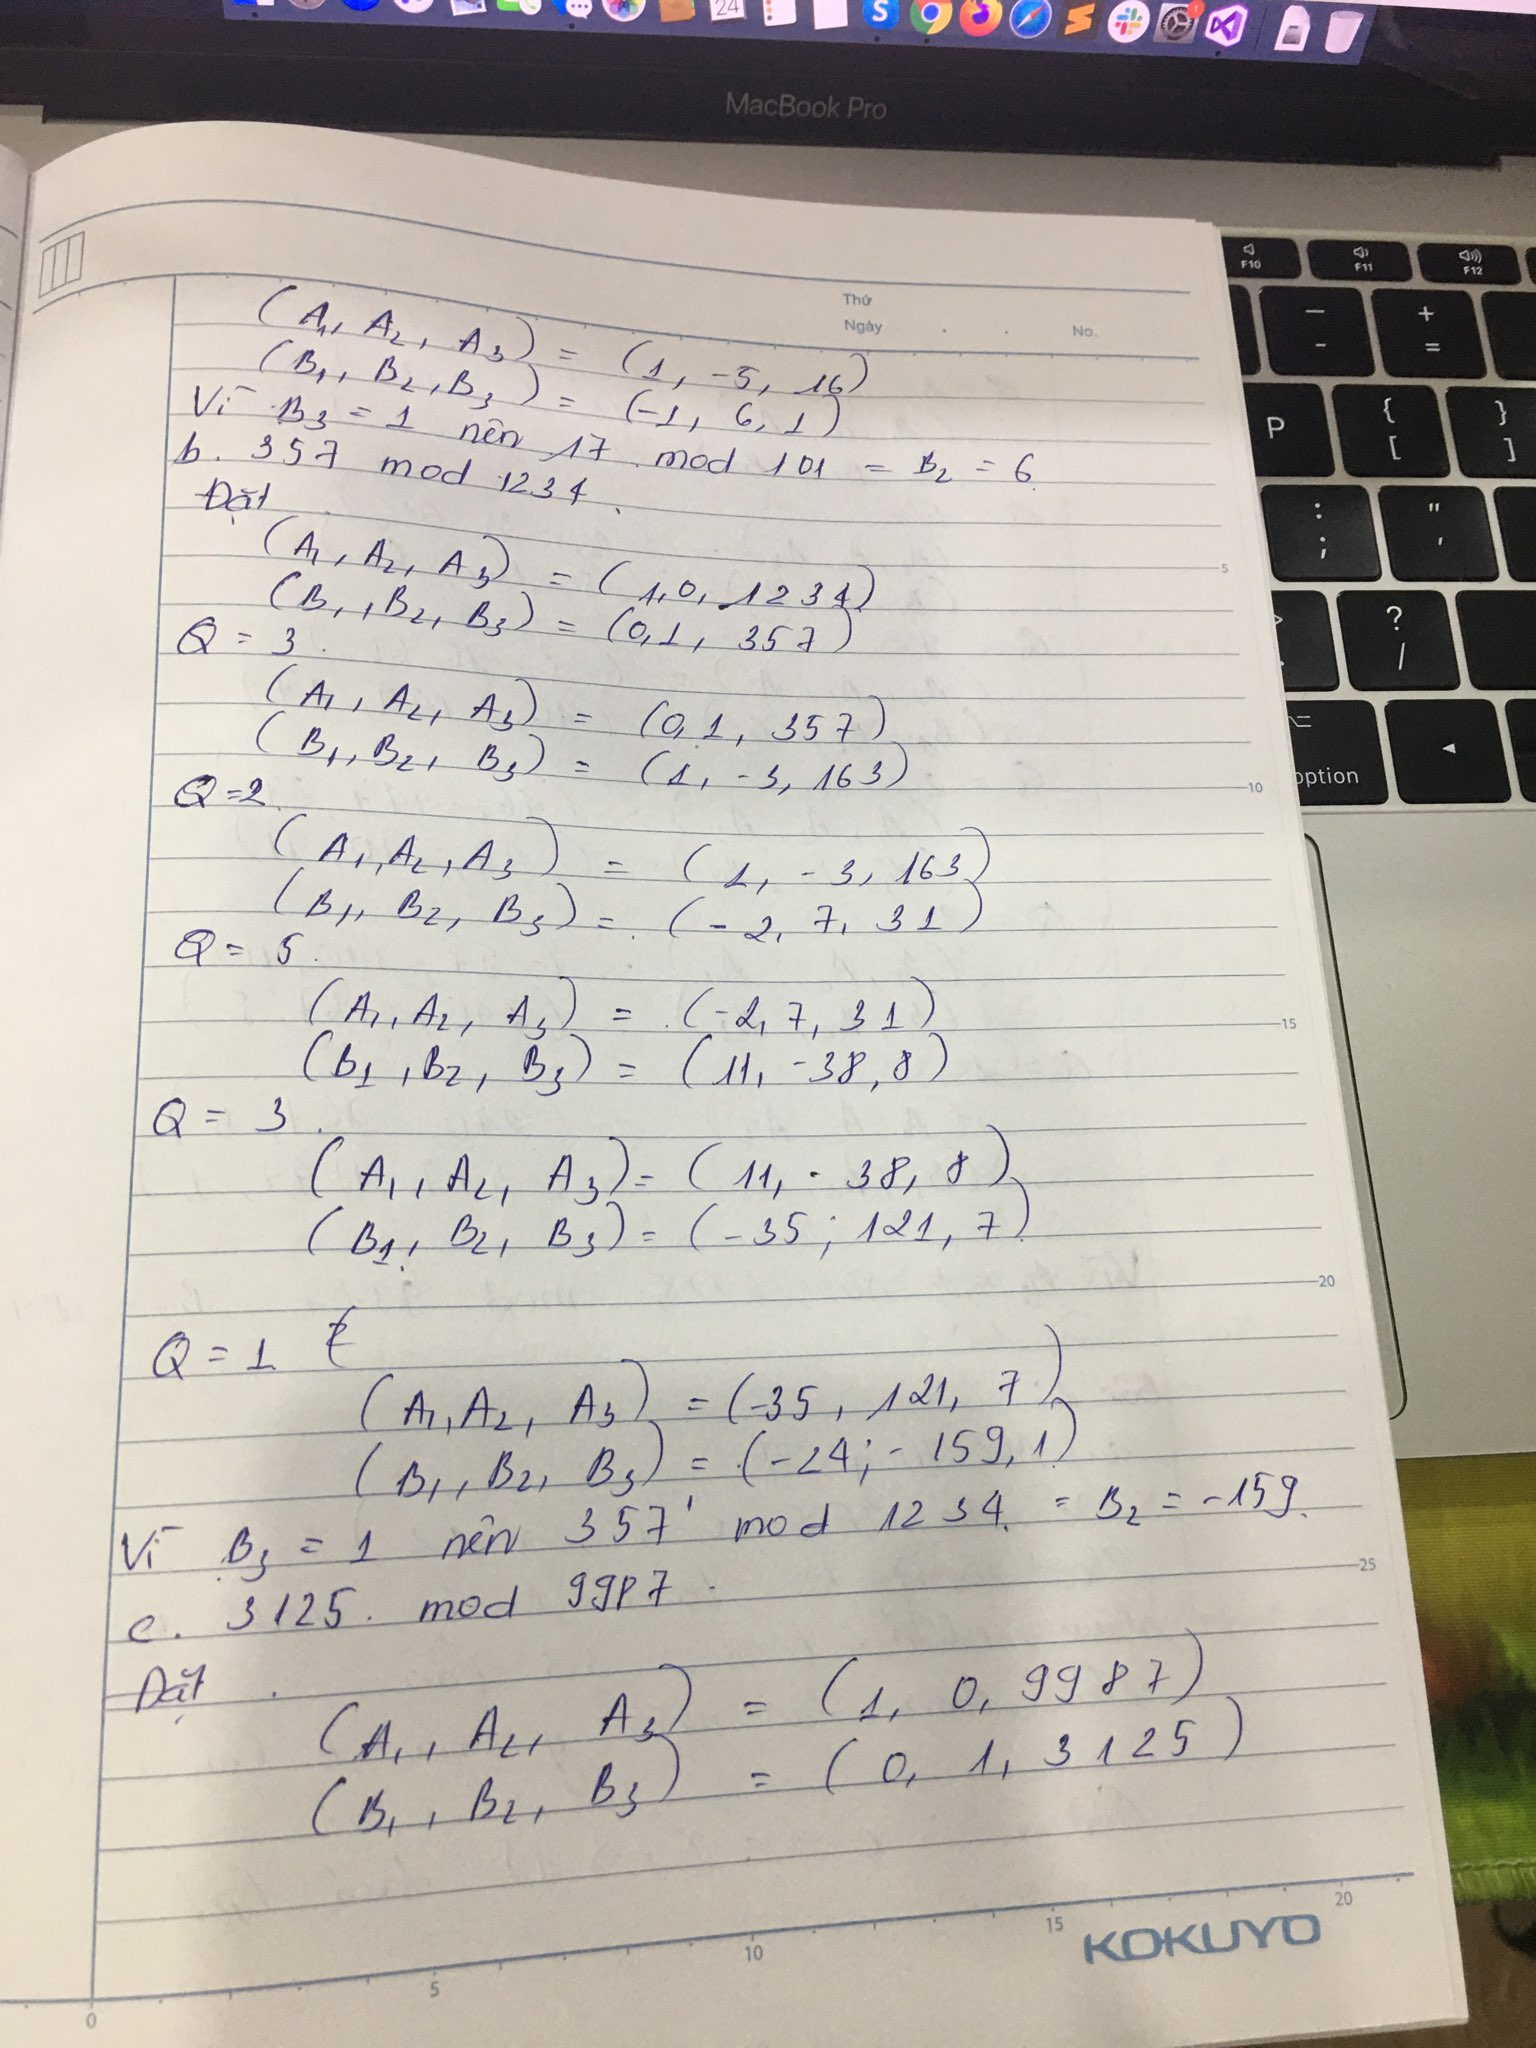 24
S
1
MacBook Pro
F10
F11
F12
Thứ
Ngày . . No.
(A1, A2, A3) = (1, -5, 16)
(B1, B2, B3) = (-1, 6, 1)
Vì B3 = 1 nên 17 mod 101 = B2 = 6
b. 357 mod 1234.
Đặt
(A1, A2, A3) = (1, 0, 1234)
(B1, B2, B3) = (0, 1, 357)
Q = 3.
(A1, A2, A3) = (0, 1, 357)
(B1, B2, B3) = (1, -3, 163)
Q = 2.
(A1, A2, A3) = (1, -3, 163)
(B1, B2, B3) = (-2, 7, 31)
Q = 5.
(A1, A2, A3) = (-2, 7, 31)
(B1, B2, B3) = (11, -38, 8)
Q = 3.
(A1, A2, A3) = (11, - 38, 8)
(B1, B2, B3) = (-35; 121, 7)
Q = 1
(A1, A2, A3) = (-35, 121, 7)
(B1, B2, B3) = (-24; - 159, 1)
Vì B3 = 1 nên 357' mod 1234. = B2 = -159.
c. 3125. mod 9987.
Đặt
(A1, A2, A3) = (1, 0, 9987)
(B1, B2, B3) = (0, 1, 3125)
5
10
15
20
25
0
5
10
15
20
KOKUYO
- -
+ =
P
{ [
} ]
: ;
" '
? /
option